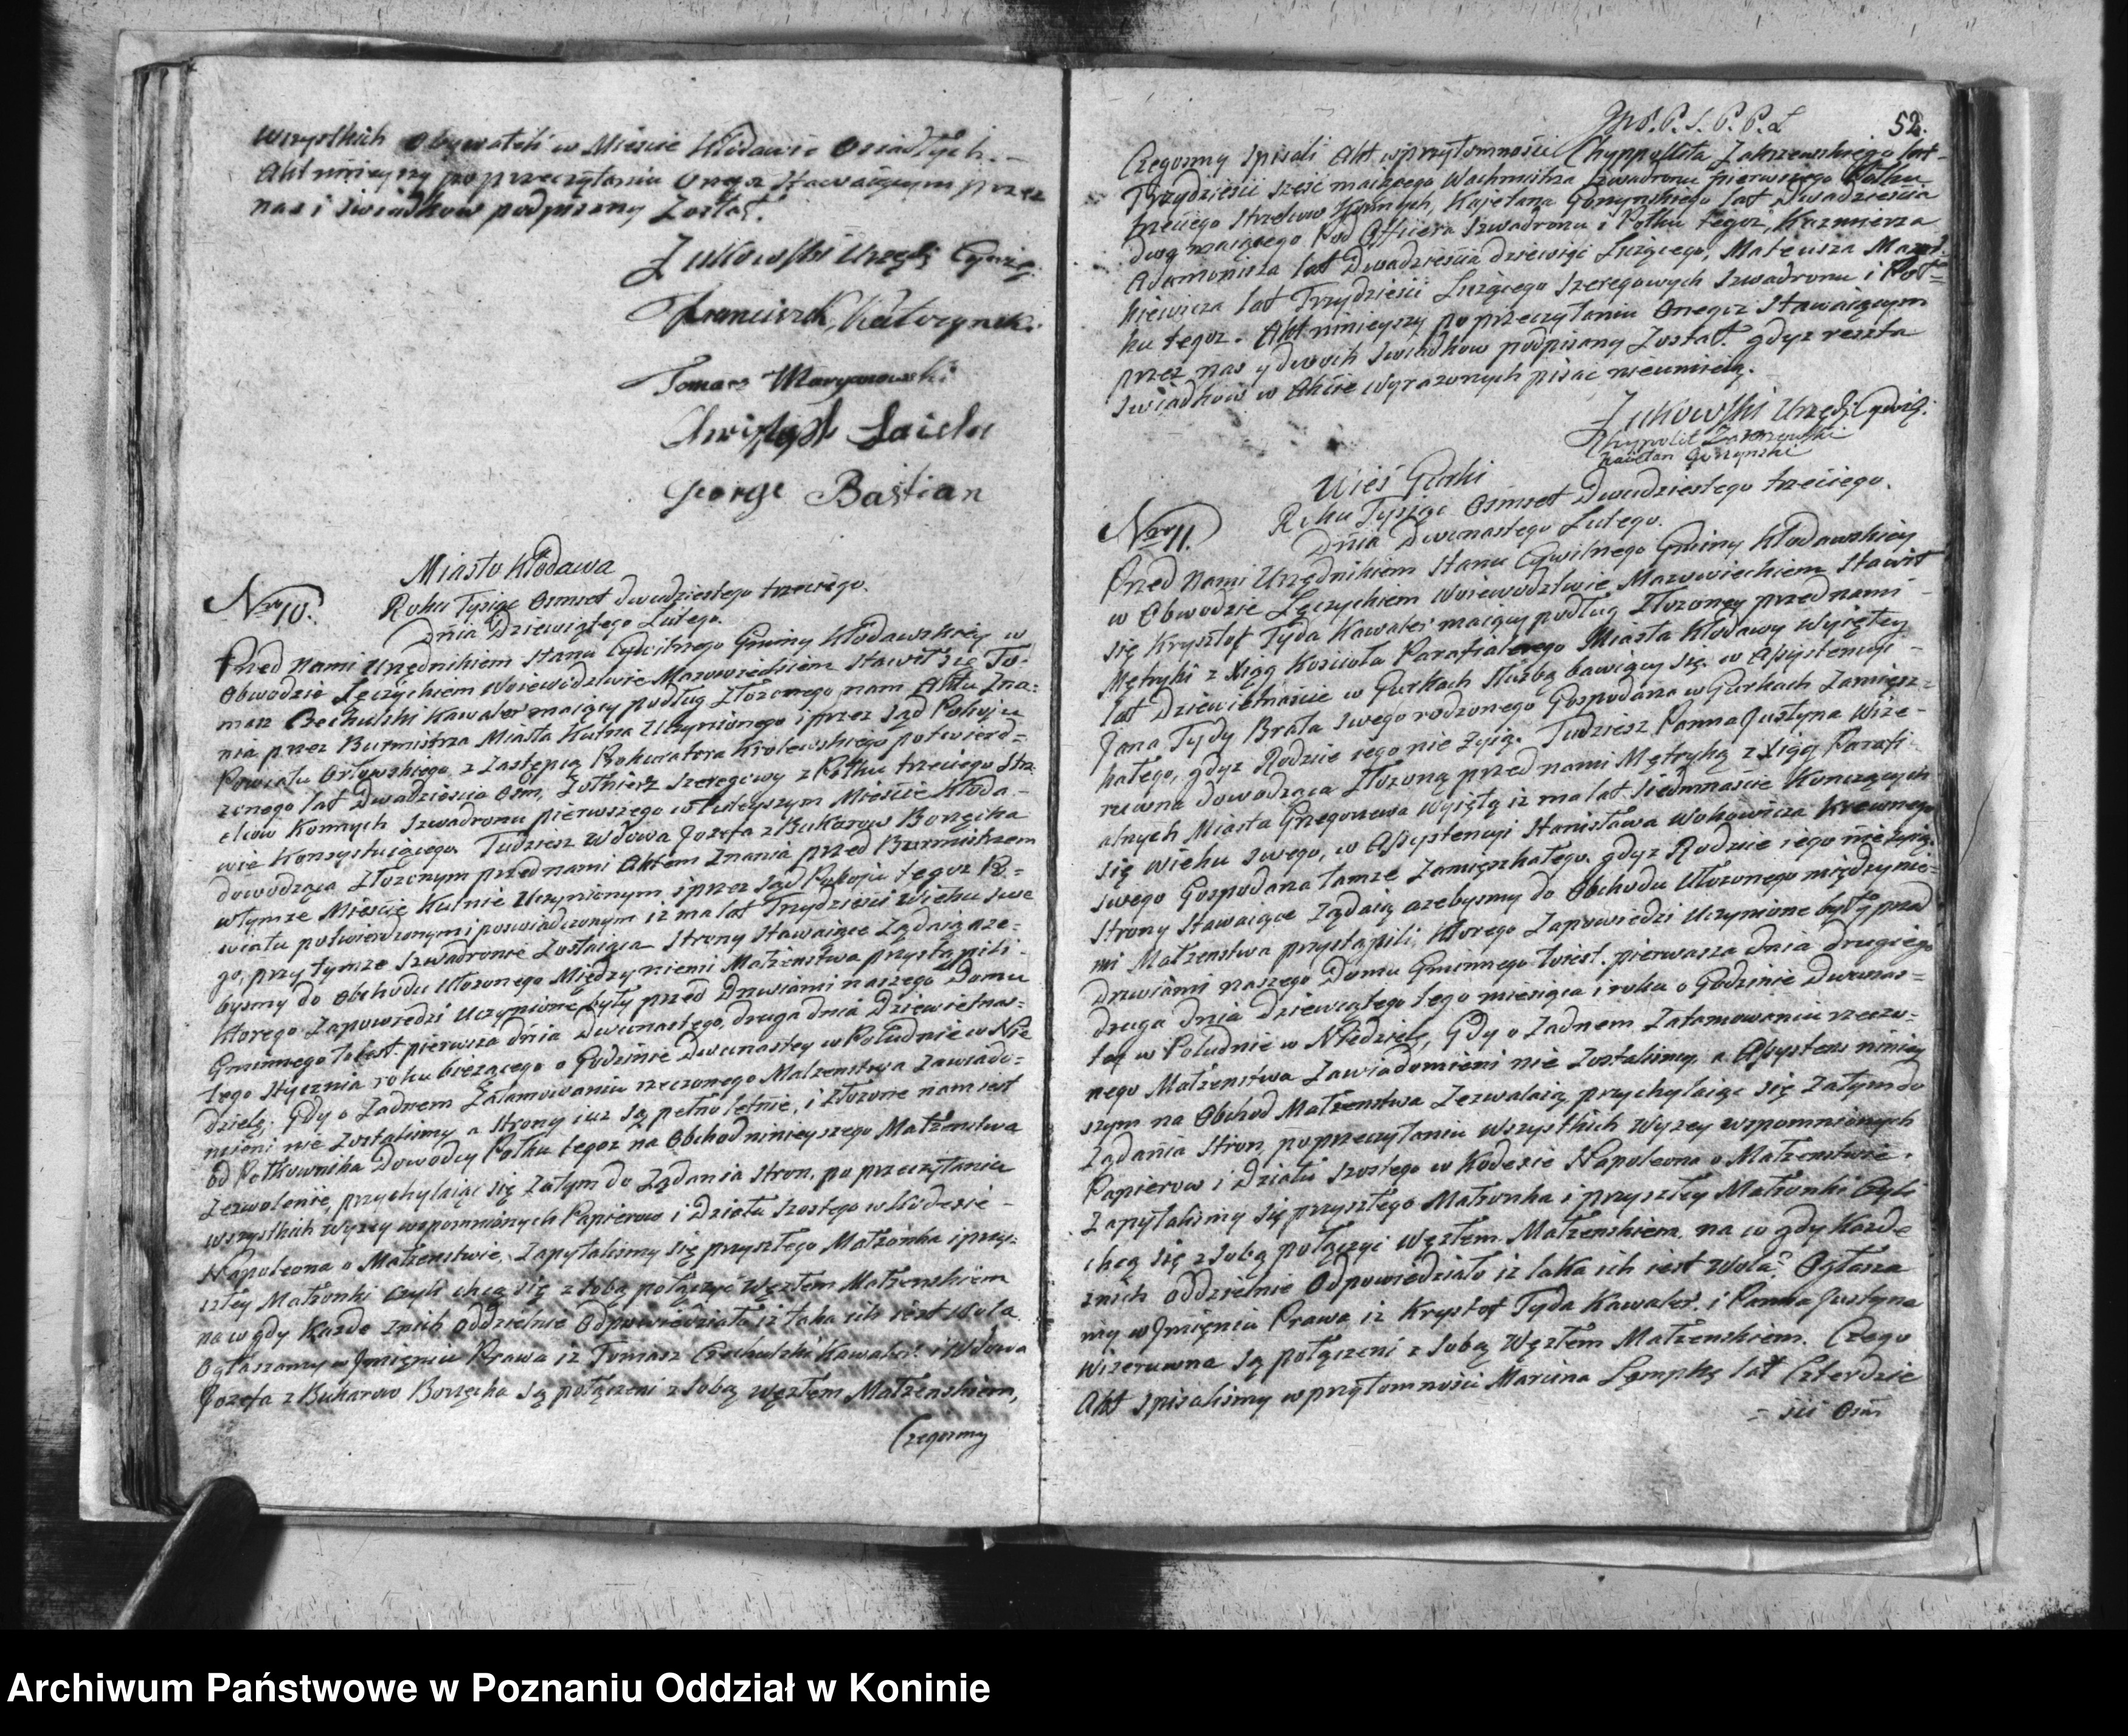 Wszystkich Obywateli w Mieście Kłodawie Osiadłych. –
Akt ninieyszy po przeczytaniu Onegoz Stawaiącym przez
nas i swiadkow podpisany Został.
Zukowski Urzędk Cywil:
Franciszek Kulczynski
Tomasz Maryanowski
Christoph
George Bastian
Miasto Kłodawa
Nro 10. Roku Tysiąc Osmset dwudziestego trzeciego.
Dnia Dziewiątego Lutego.
Przed Nami Urzędnikiem Stanu Cywilnego Gminy Kłodawskiey w
Obwodzie Łęczyckiem Woiewództwie Mazowieckiem Stawił się To-
masz Czechulski Kawaler maiący podług Złożonego nam Aktu Zna-
nia przez Burmistrza Miasta Kutna Uczynionego i przez Sąd Pokoju
Powiatu Orłowskiego z Zastępcą Prokuratora Krolewskiego potwierd-
zonego lat Dwadzieścia Osm, Zołnierz Szeregowy z Pólku trzeciego Strz-
elcow Konnych Szwadronu pierwszego w tuteyszym Mieście Kłoda-
wie Konsystuiącego. Tudzież Wdowa Jozefa z Bukarow Borzęcka
dowodząca Złozonym przed nami Aktem Znania przed Burmistrzem
w tymze Mieście Kutnie Uczynionym i przez Sąd Pokoju tegoz Po-
wiatu potwierdzonym i poswiadczonym iż ma lat Trzydzieści Wieku swe
go, przy tymze Szwadronie Zostaiąca Strony Stawaiące Ządaią aze-
bysmy do Obchodu Ułożonego Między niemi Małżenstwa przystąpili
ktorego Zapowiedzi Uczynione były przed Drzwiami naszego Domu
Gminnego to iest. pierwsza dnia dwunastego, druga dnia Dziewietnas-
tego Stycznia roku bieżącego o Godzinie Dwunastey w Południe w Nie
dzielę; Gdy o Zadnem Zatamowaniu rzeczonego Małzenstwa Zawiado-
mieni nie Zostalismy a Strony iuz są pełnoletnie, i Złozone nam iest
od Półkownika Dowodcy Pólku tegoz na Obchod ninieyszego Małżenstwa
Zezwolenie, przychylaiąc się Zatym do Ządania Stron, po przeczytaniu
wszystkich Wyzey wspomnionych Papierow i Działu Szostego w Kodexie
Napoleona o Małzenstwie, Zapytalismy się przyszłego Małzonka i przy-
szłey Małzonki czyli chcą się z sobą połączyć Węzłem Małżenskiem
na co gdy Kazde znich oddzielnie Odpowiedziało iż taka ich iest Wola,
Ogłaszamy w Jmieniu Prawa iz Tomasz Czechulski Kawaler i Wdowa
Jozefa z Bukarow Borzęcka Są połączeni z Sobą węzłem Małzenskiem,
Czegosmy
52.
Czegosmy Spisali Akt w przytomności Chyppolita Zakrzewskiego lat
Trzydzieści sześć maiącego Wachmistrza Szwadronu pierwszego Pólku
trzeciego Strzelcow Konnych, Kajetana Gorzynskiego lat Dwadzieścia
dwa maiącego Pod Officera Szwadronu i Pólku tegoz, Kazmierza
Adamowicza lat Dwadzieścia dziewięć Liczącego, Mateusza
kiewicza lat Trzydzieści Liczącego Szeregowych Szwadronu i Pół-
ku tegoz. Akt ninieyszy po przeczytaniu Onegoz Stawaiącym
przez nas y dwoch Swiadkow podpisany Został gdyz reszta
Swiadkow w Akcie wyrażonych pisac nieumieią.
Zukowski Urzędk Cywil:
Chypolit Zakrzewski
Kaietan Gorzynski
Wieś Gurki
Nro 11. Roku Tysiąc Osmset Dwudziestego trzeciego.
Dnia Dwunastego Lutego.
Przed Nami Urzędnikiem Stanu Cywilnego Gminy Kłodawskiey
w Obwodzie Łęczyckiem Woiewodztwie Mazowieckiem Stawił
się Krysztof Tyda Kawaler maiący podług Złożoney przed nami
Mętryki z Xiąg Kościoła Parafialnego Miasta Kłodawy Wyiętey
lat Dziewietnaście w Gurkach Służbą bawiący się w Assystencyi
Jana Tydy Brata Swego rodzonego Gospodarza w Gurkach Zamiesz-
kałego, gdyz Rodzice iego nie zyią. Tudziesz Panna Justyna Wize-
rowna dowodząca Złozoną przed nami Mętryką z Xiąg Parafi
alnych Miasta Grzegorzewa Wyiętą iz ma lat Siedmnaście Konczących
się wieku swego, w Assystencyi Stanisława Wokowicza Krewnego
swego Gospodarza tamze Zamieszkałego, gdyz Rodzice iego nie zyią.
Strony Stawaiące Ządaią azebysmy do Obchodu Ułozonego między nie-
mi Małzenstwa przystąpili, Ktorego Zapowiedzi Uczynione były przed
Drzwiami naszego Domu Gminnego toiest. pierwsza dnia drugiego
druga dnia Dziewiątego tego miesiąca i roku o Godzinie Dwunas-
tey w Południe w Niedzielę, Gdy o Zadnem Zatamowaniu rzeczo-
nego Małżenstwa Zawiadomieni nie Zostalismy, a Assystens niniey
szym na Obchod Małzenstwa Zezwalaią, przychylaiąc się Zatym do
Ządania Stron, po przeczytaniu wszystkich Wyzey wspomnionych
Papierow i Działu Szostego w Kodexie Napoleona o Małzenstwie.
Zapytalismy się przyszłego Małzonka i przyszłey Małzonki Czyli
chcą się z sobą połączyć Węzłem Małzenskiem, na co gdy Kazde
znich oddzielnie Odpowiedziało iz taka ich iest Wola. Ogłasza
my w Jmieniu Prawa iz Krysztof Tyda Kawaler i Panna Justyna
Wizerowna są połączeni z Sobą Węzłem Małzenskiem. Czego
Akt Spisalismy w przytomności Marcina Lęmpkę lat Czterdzie
= ści Osm
Archiwum Państwowe w Poznaniu Oddział w Koninie